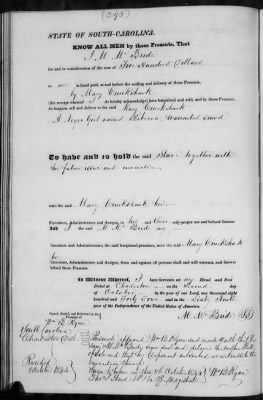 (393)
STATE OF SOUTH-CAROLINA.
KNOW ALL MEN by these Presents, That
I M. McBride
for and in consideration of the sum of Two Hundred Dollars
to me in hand paid, at and before the sealing and delivery of these Presents,
by Mary Cruikshank
(the receipt whereof I do hereby acknowledge) have bargained and sold, and by these Presents,
do bargain, sell and deliver to the said Mary Cruikshank
A Negro Girl named Rebecca, Warranted sound
To have and to hold the said Slave together with
her future issue and increase
unto the said Mary Cruikshank her
Executors, Administrators and Assigns, to her and their only proper use and behoof forever.
And I the said M. McBride my
Executors, Administrators, the said bargained premises, unto the said Mary Cruikshank
her
Executors, Administrators and Assigns, from and against all persons shall and will warrant, and forever
defend these Presents.
In Witness Whereof, I have hereunto set my Hand and Seal
Dated at Charleston on the Second day
of October in the year of our Lord one thousand eight
hundred and Forty Four and in the Sixty Ninth
year of the Independence of the United States of America.
Signed, Sealed and Delivered in the Presence of
M. McBride
W. B. Ryan
South Carolina
Charleston Dist.
Personally appeared W B Ryan and made Oath that he
saw M. McBride sign seal and deliver the within
and that he witnessed the
Recorded
October 1844
October 1844
W B Ryan
Magistrate